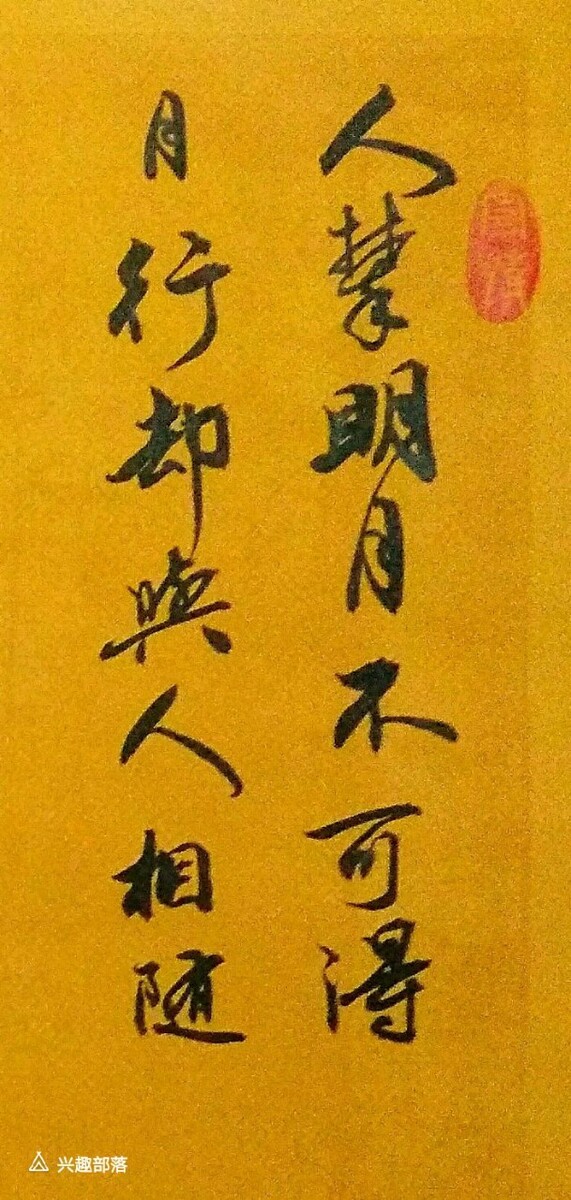 人攀明月不可得
月行却與人相随
兴趣部落